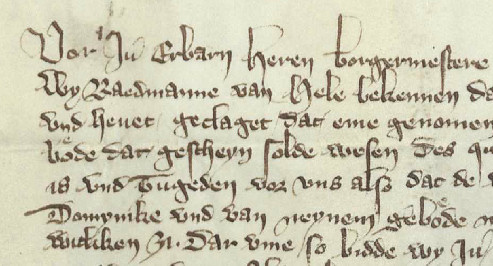 Vor Ju Erbarn Heren borgermestere
Wy Raedmanne van Hele bekennen
vnd heuet geclaget dat eme genomen
bode dat gescheyn solde wesen Des
is vnd Tugeden vor vns alsz dat de
Domynike vnd van neynem gebode
witliken zy. Dar vme so bidde wy Ju